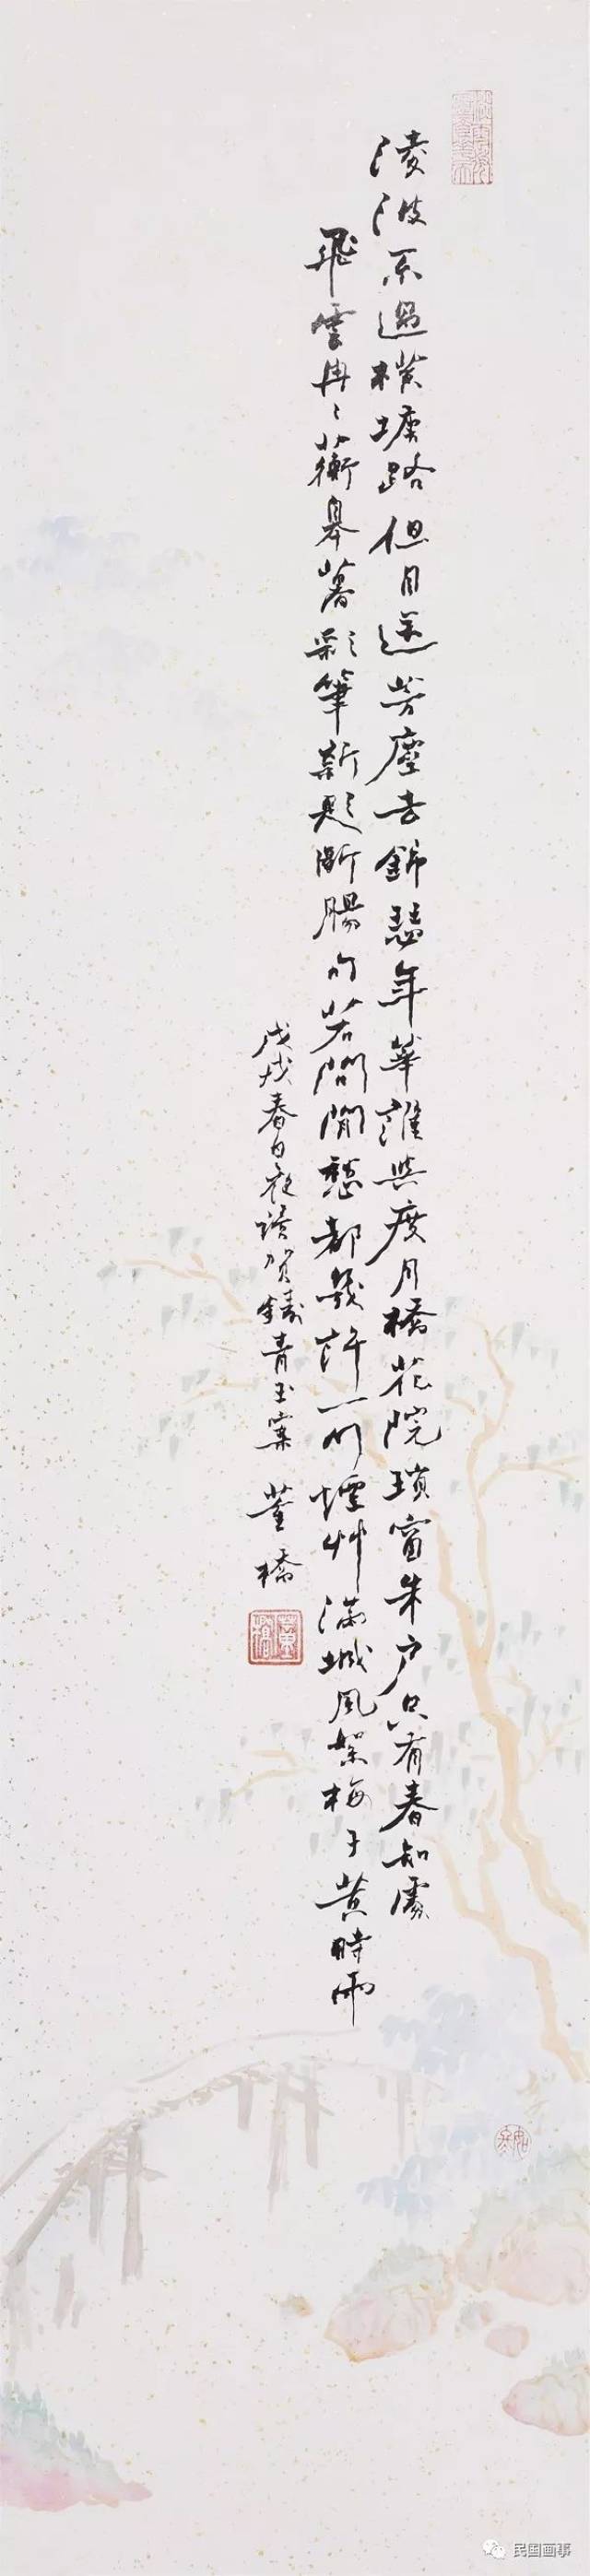 淩波不過橫塘路但目送芳塵去錦瑟年華誰與度月橋花院瑣窗朱户只有春知處
飛雲冉〻蘅皋暮彩筆新題斷腸句若問閒愁都幾許一川煙艸滿城風絮梅子黃時雨
戊戌春日夜讀賀鑄青玉案 董橋
董橋
民国画事